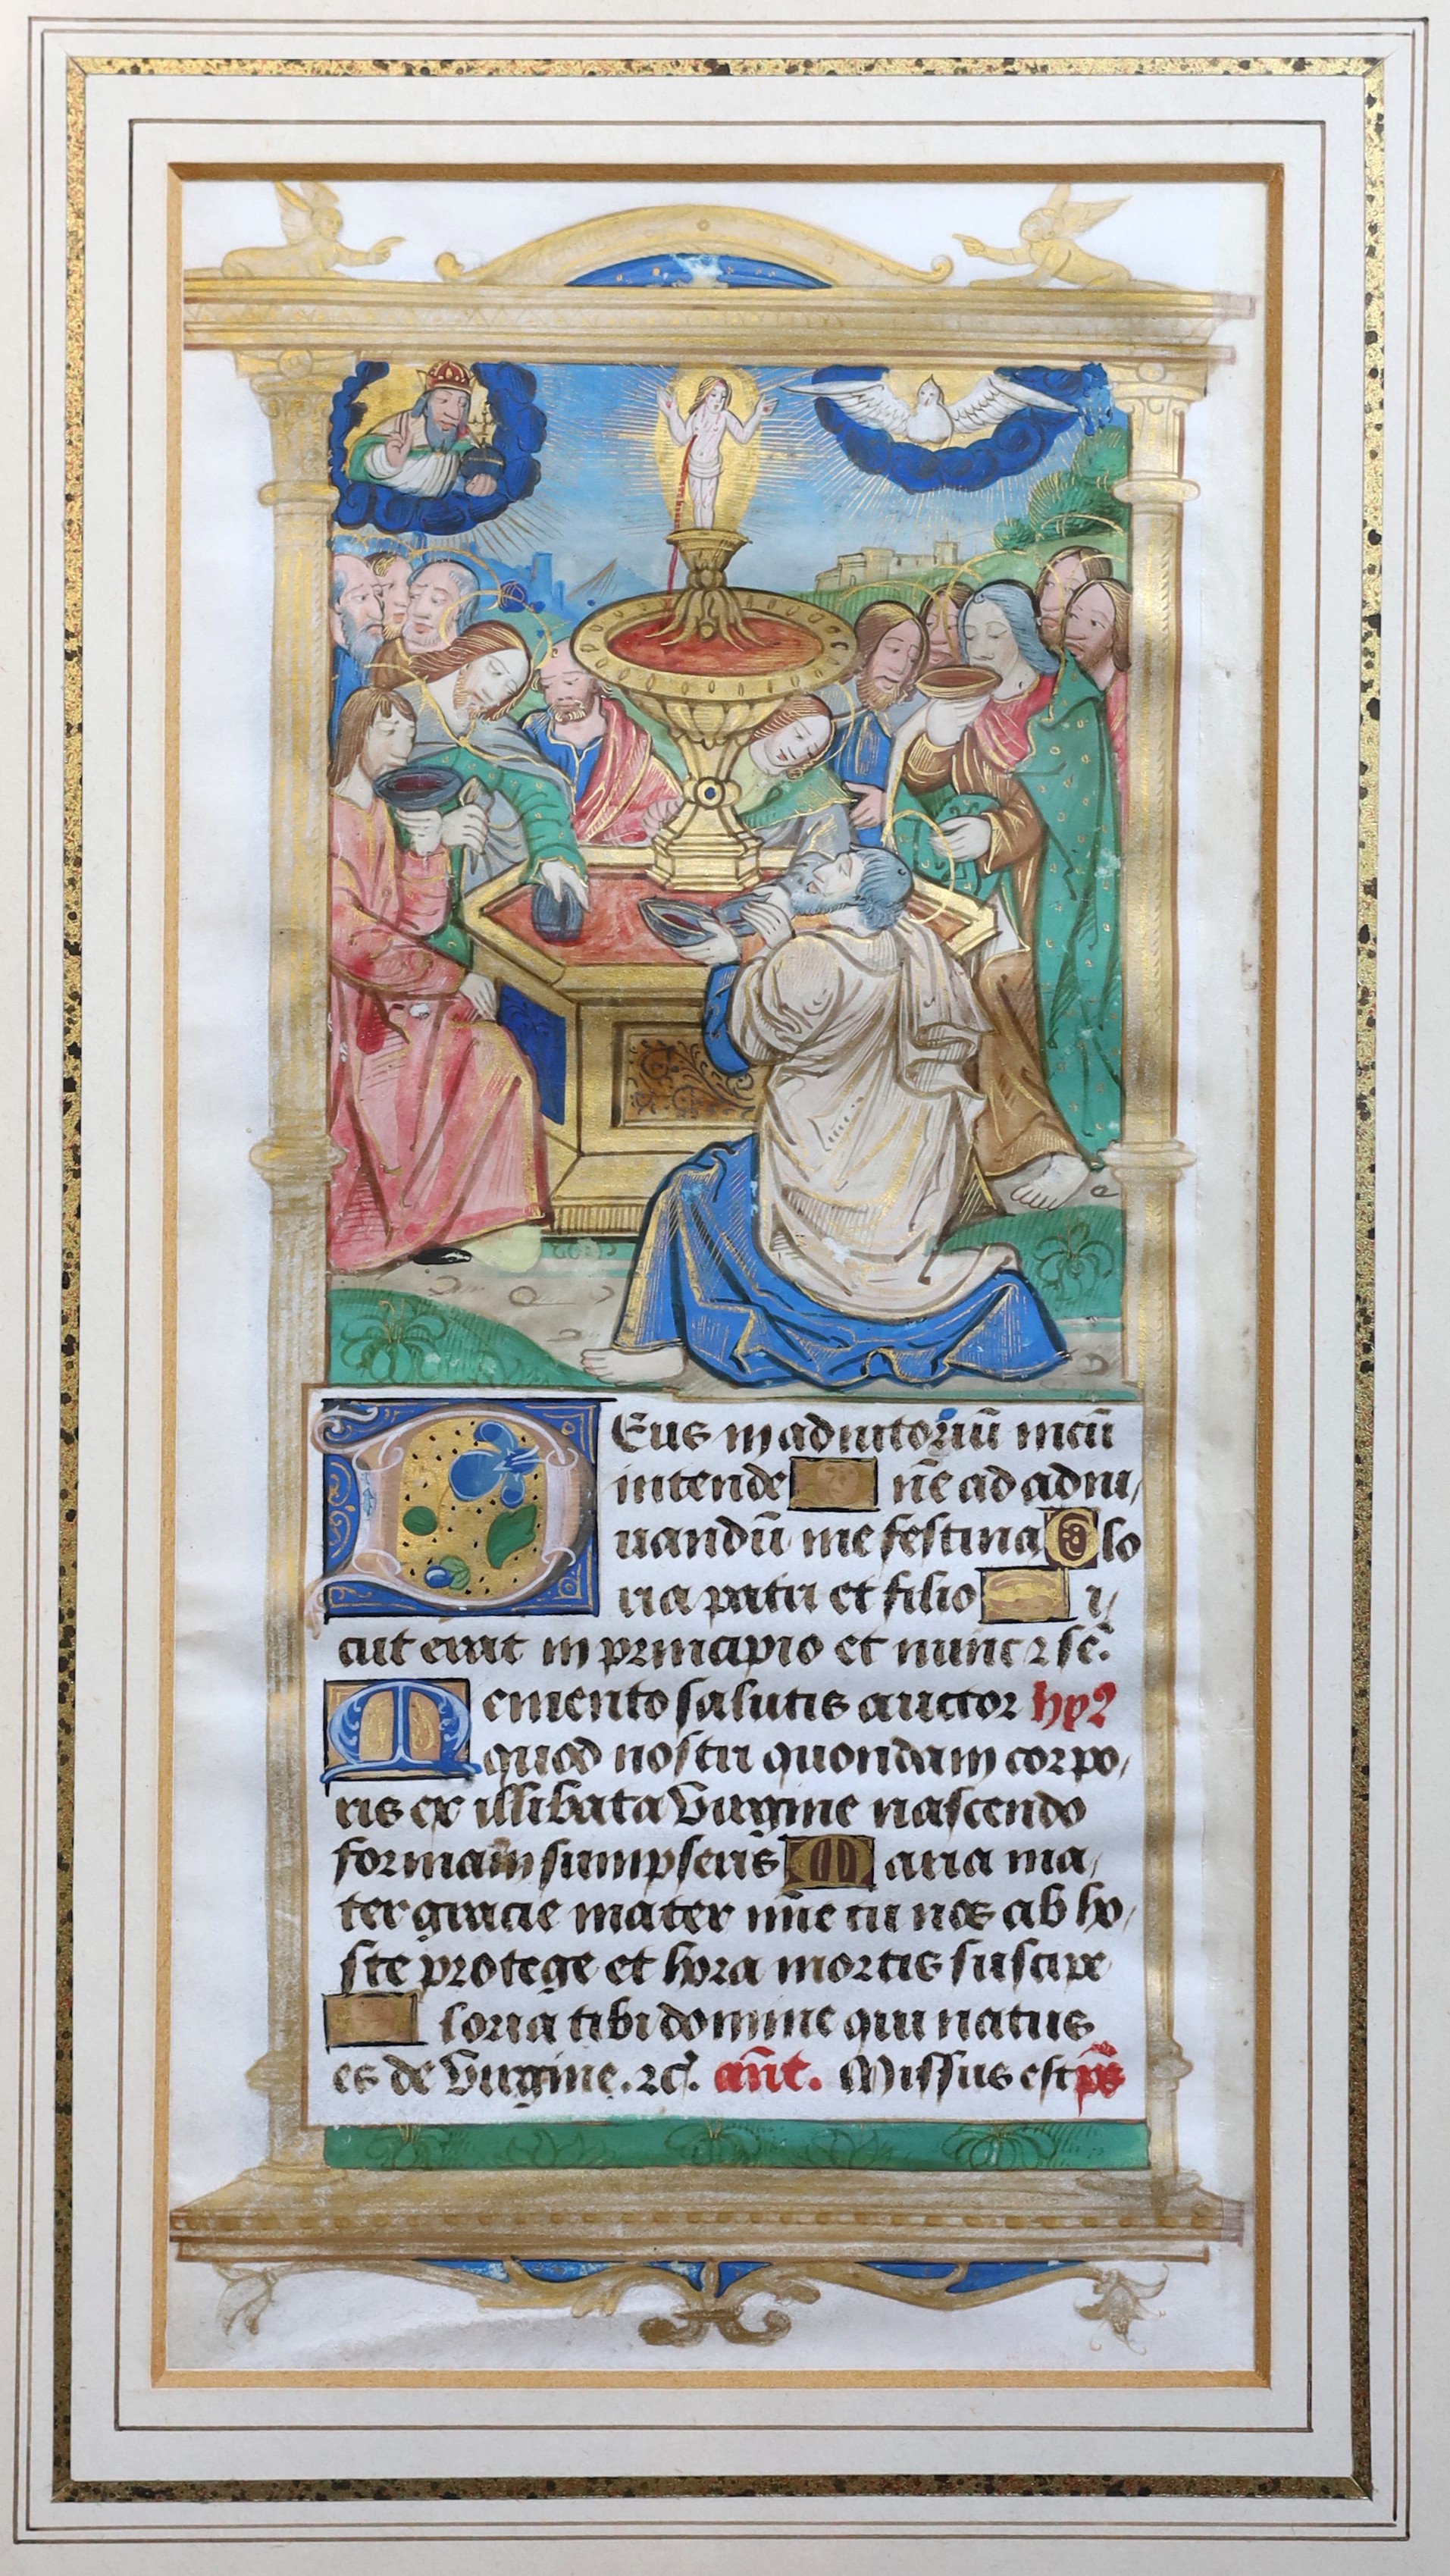 DEus in adiutoriũ meũ
intende nẽ ad adiu/
uandũ me festina Glo
ria patri et filio i/
cut erat in principio et nunc ⁊ sẽ.
Memento salutis auctor hyꝰ
quod nostri quondam corpo/
ris ex illibata virgine nascendo
formam sumpseris Maria ma/
ter gracie mater mĩe tu nos ab ho/
ste protege et hora mortis suscipe
loria tibi domine qui natus
es de virgine. ⁊c̃. añt. Missus est p̃s